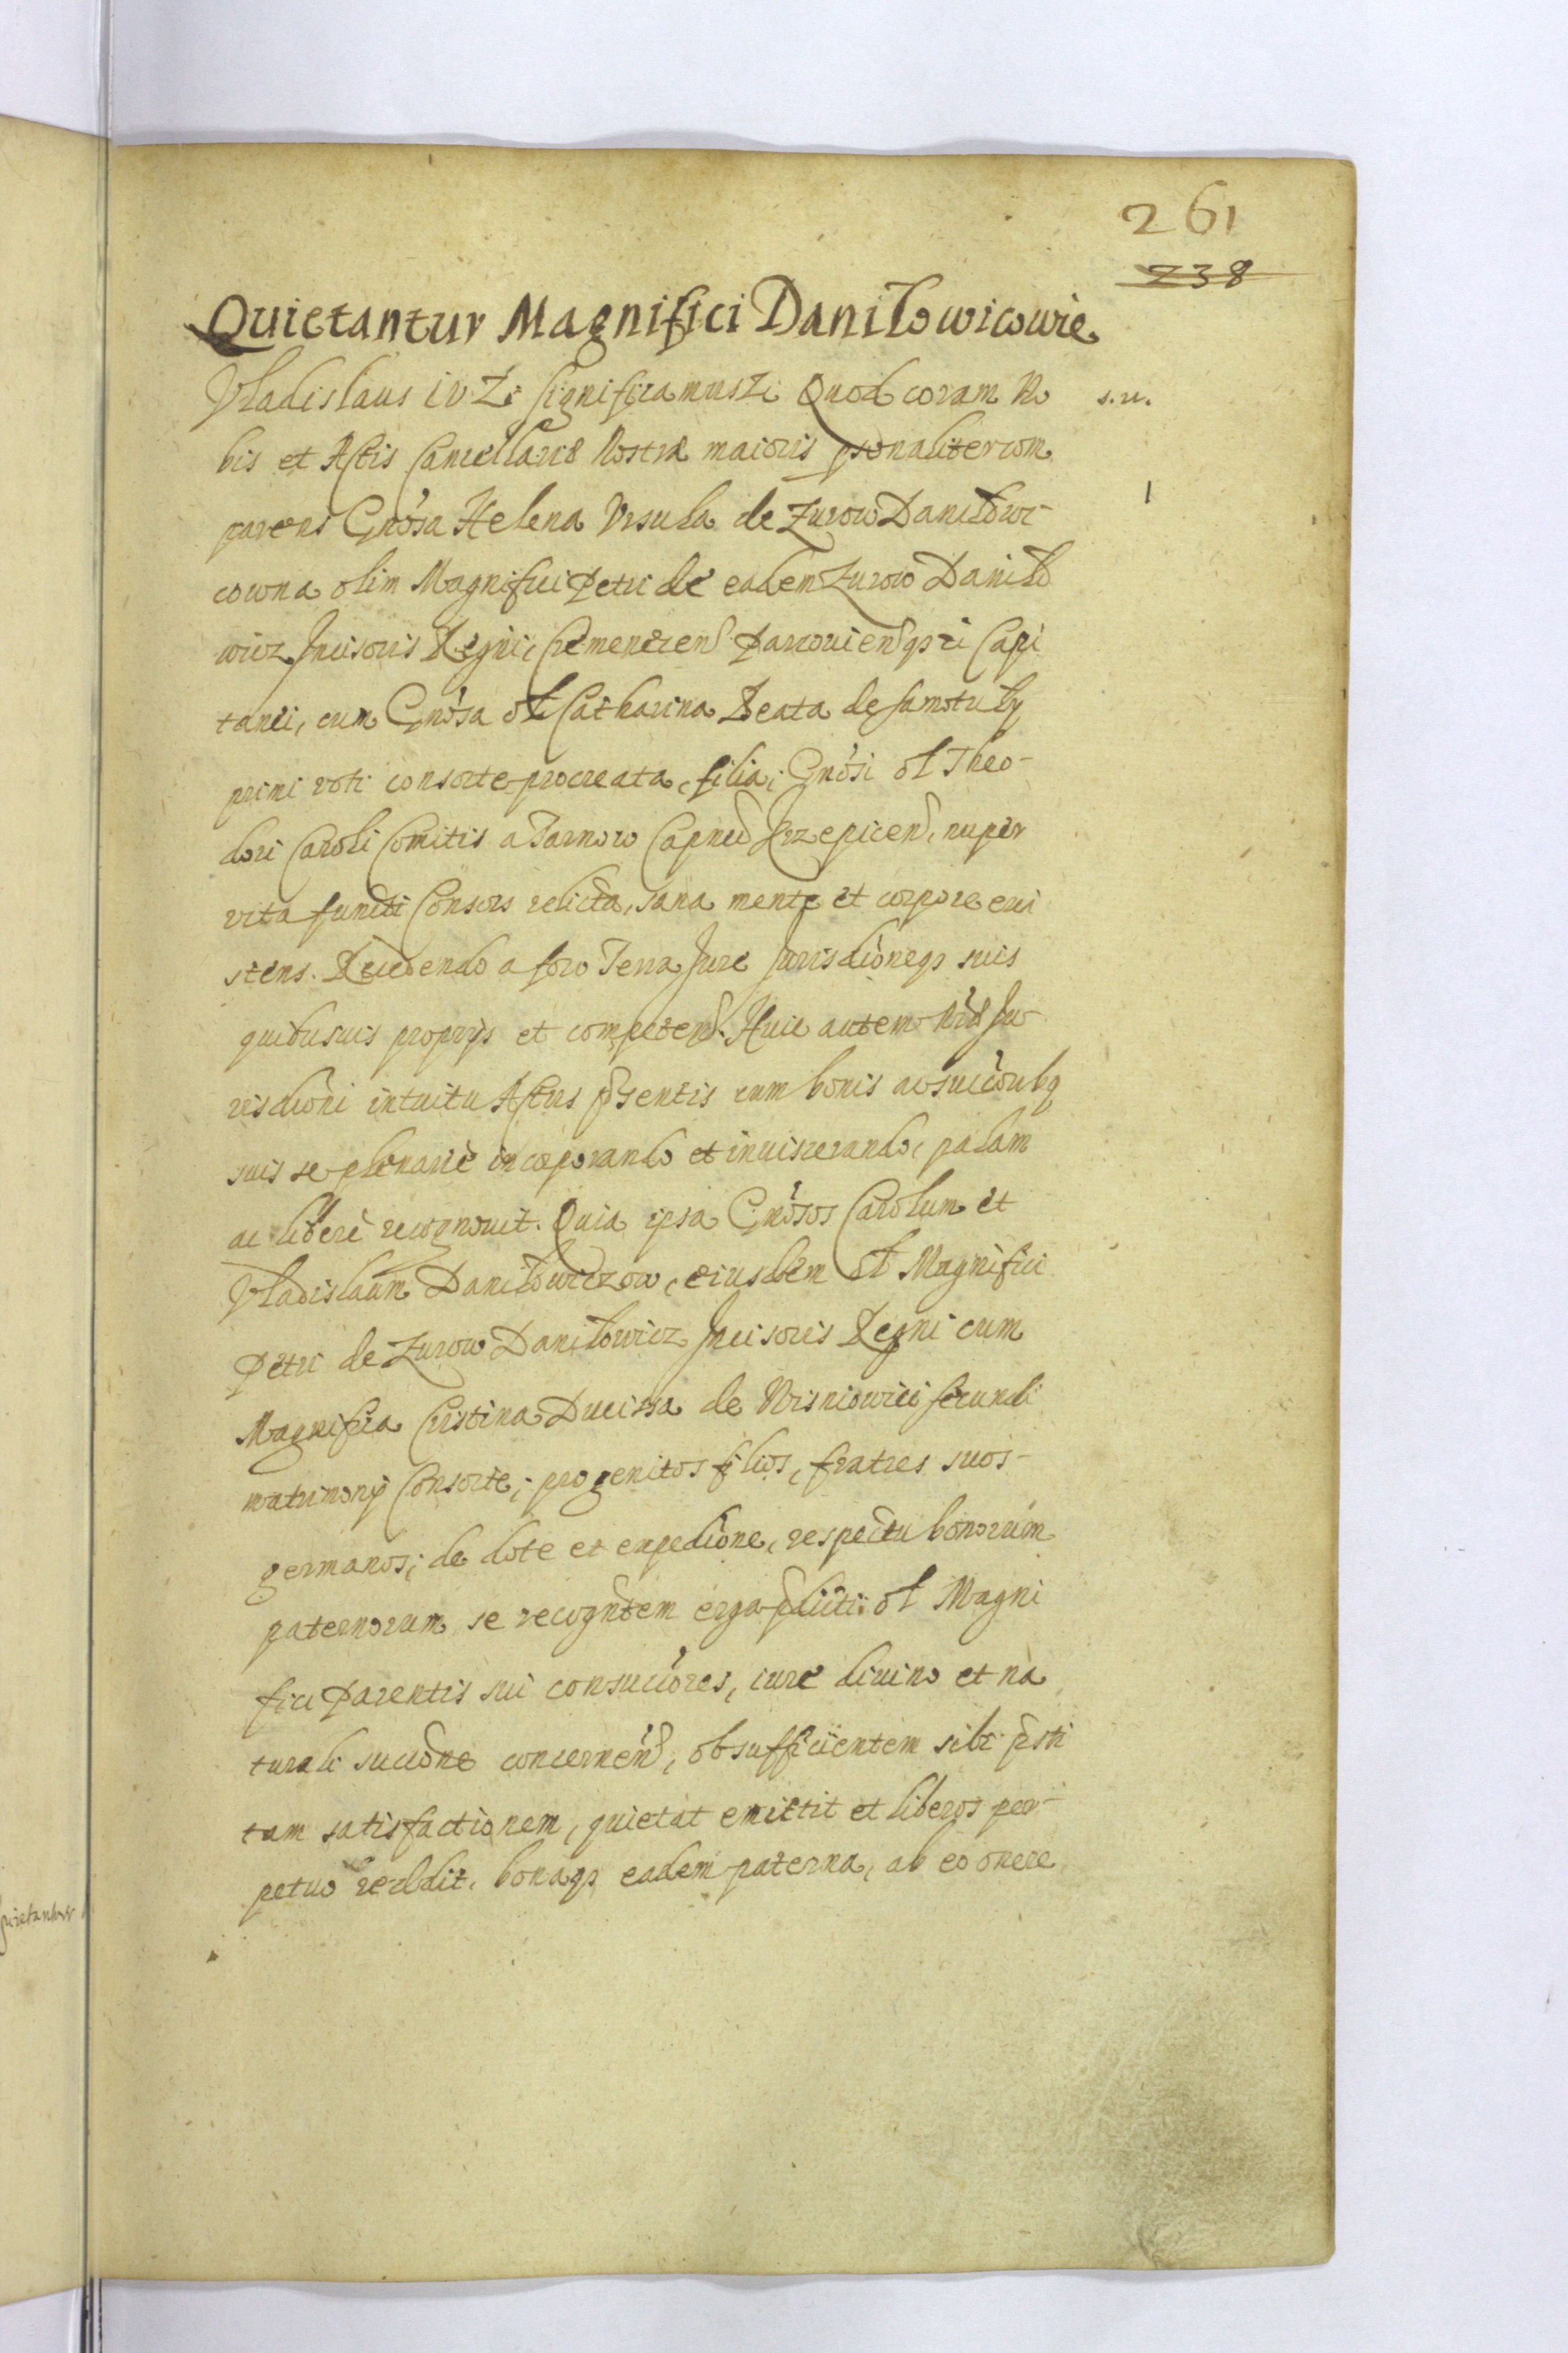 261
238
Quietantur Magnifici Daniłowicowie
Vladislaus IV Zc significamus Zc Quod coram No s.n.
bis et Actis Cancellariæ Nostræ maioris psonaliter com
parens Gnosa Helena Vrsula de Zurow Daniłowi- 1
cowna olim Magnifici Petri de eadem Zurow Daniło
wicz Incisoris Regni, Cremenecen Parcouienq3 Capi
tanei, cum Gnosa ol Catharina Beata de Samotuly
primi voti consorte procreata, filia; Gnosi ol Theo-
dori Caroli Comitis a Tarnow Capnei Krzepicen, nuper
vita functi Consors relicta, sana mente et corpore exi
stens. Recedendo a foro Terra Jure Jurisdioneq3 suis
quibusuis proprijs et competen. Huic autem Nræ Ju
risdioni intuitu Actus psentis cum bonis ac succorib9
suis se plenarie incorporando et inuiscerando, palam
ac libere recognouit. Quia ipsa Gnosos Carolum et
Vladislaum Daniłowiczow, eiusdem ol Magnifici
Petri de Zurow Daniłowicz Incisoris Regni cum
Magnifica Cristina Ducissa de Wisniowiec secundi
matrimonij Consorte; progenitos filios, fratres suos-
germanos; de dote et expedione, respectu bonorum
paternorum se recogntem erga pdicti ol Magni
fici Parentis sui consuccores, iure diuino et na
turali succione concernen, ob sufficientem sibi psti
tam satisfactionem, quietat emittit et liberos per-
petuo reddit, bonaq3 eadem paterna, ab eo onere
quietantur